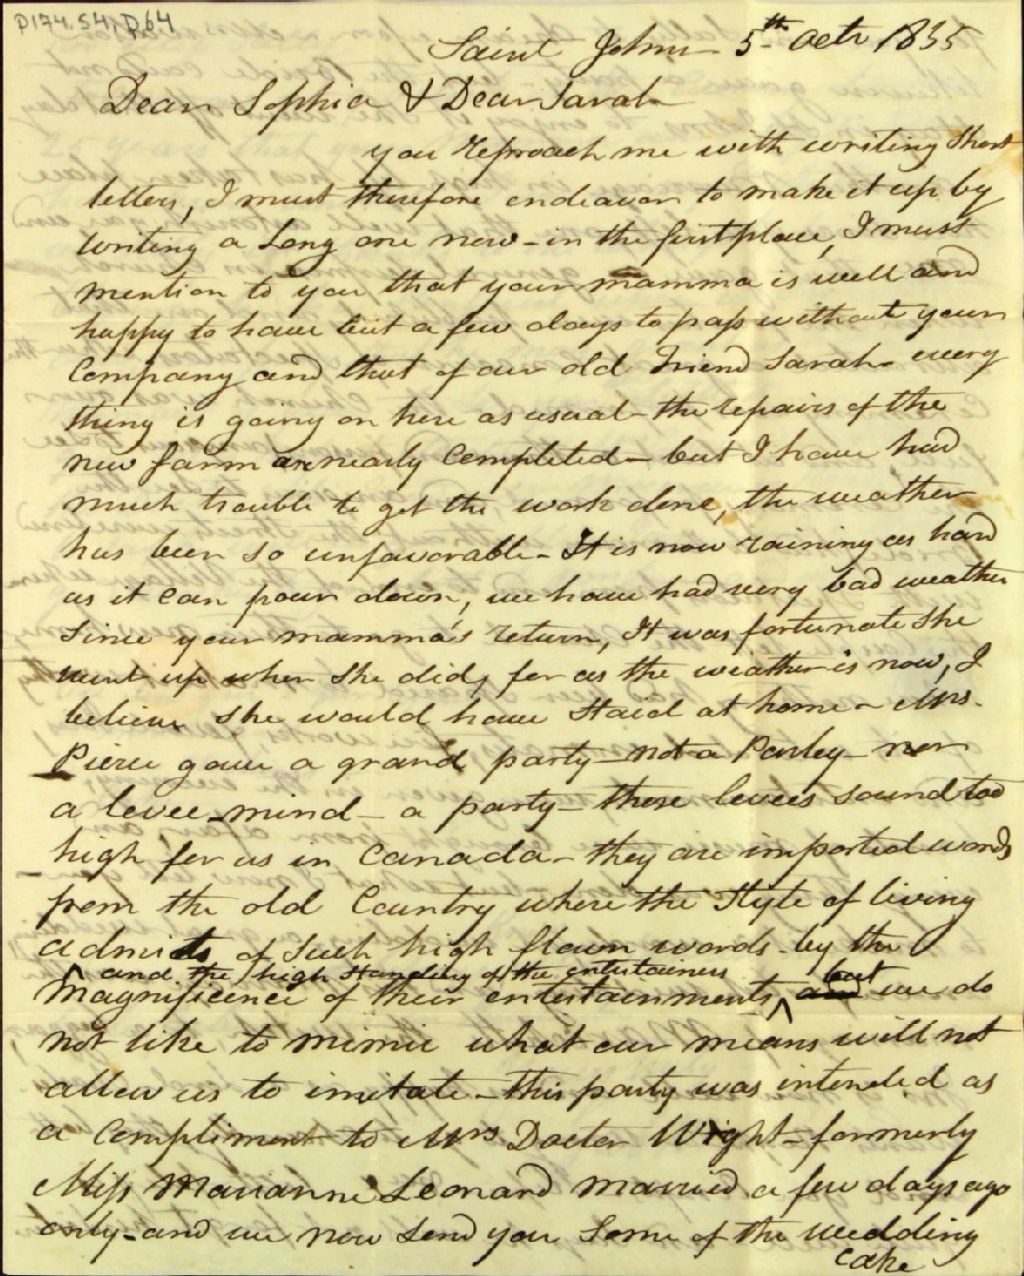 D174.S4, D64
Saint John 5th Octr 1835
Dear Sophia & Dear Sarah
you reproach me with writing short
letters, I must therefore endeavor to make it up by
writing a Long one now - in the first place, I must
mention to you that your mamma is well and
happy to have but a few days to pass without your
Company and that of our old Friend Sarah - every
thing is going on here as usual - the repairs of the
new farm are nearly Completed - but I have had
much trouble to get the work done, the weather
has been so unfavorable - It is now raining as hard
as it can pour down, we have had very bad weather
since your mamma's return, It was fortunate she
went up when she did, for as the weather is now, I
believe she would have staid at home - Mrs.
Pierce gave a grand party - not a Parley - nor
a levee - mind - a party - these levees sound too
high for us in Canada - they are imported words
from the old Country where the style of living
admits of such high flown words - by the
and the high standing of the entertainers
magnificence of their entertainments, and but we do
not like to mimic what our means will not
allow us to imitate - this party was intended as
a Compliment to Mrs Doctor Wright - formerly
Miss Marianne Leonard married a few days ago
only - and we now send you some of the wedding
cake